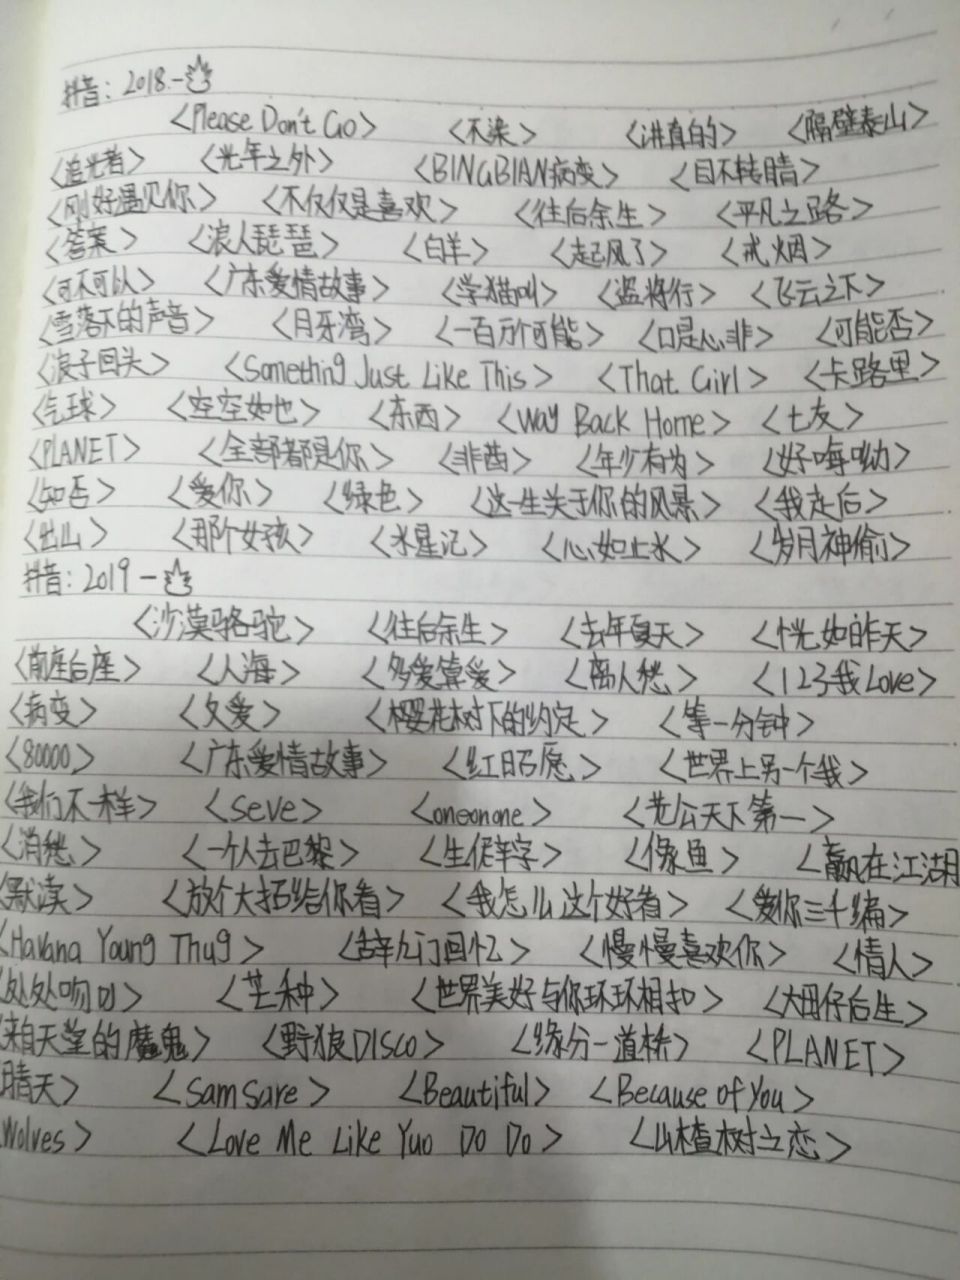 抖音：2018.—
<Please Don't Go> <不染> <讲真的> <隔壁泰山>
<追光者> <光年之外> <BINGBIAN病变> <目不转睛>
<刚好遇见你> <不仅仅是喜欢> <往后余生> <平凡之路>
<答案> <浪人琵琶> <白羊> <起风了> <戒烟>
<可不可以> <广东爱情故事> <学猫叫> <盗将行> <飞云之下>
<雪落下的声音> <月牙湾> <一百万个可能> <口是心非> <可能否>
<浪子回头> <Something Just Like This> <That Girl> <卡路里>
<气球> <空空如也> <东西> <Way Back Home> <七友>
<PLANET> <全部都是你> <非酋> <年少有为> <好嗨呦>
<知否> <爱你> <绿色> <这一生关于你的风景> <我走后>
<出山> <那个女孩> <水星记> <心如止水> <岁月神偷>
抖音：2019—
<沙漠骆驼> <往后余生> <去年夏天> <恍如昨天>
<前座后座> <人海> <多爱算爱> <离人愁> <123我Love>
<病变> <欠爱> <樱花树下的约定> <等一分钟>
<80000> <广东爱情故事> <红昭愿> <世界上另一个我>
<我们不一样> <seve> <oneonone> <老公天下第一>
<消愁> <一个人去巴黎> <生僻字> <像鱼> <赢在江湖
<默读> <放个大招给你看> <我怎么这个好看> <爱你三千编>
<Havana Young Thug> <辞九门回忆> <慢慢喜欢你> <情人>
<处处吻> <芒种> <世界美好与你环环相扣> <大田仔后生>
<来自天堂的魔鬼> <野狼DISCO> <缘分一道桥> <PLANET>
晴天> <SamSare> <Beautiful> <Because of You>
Wolves> <Love Me Like Yuo Do Do> <山楂树之恋>